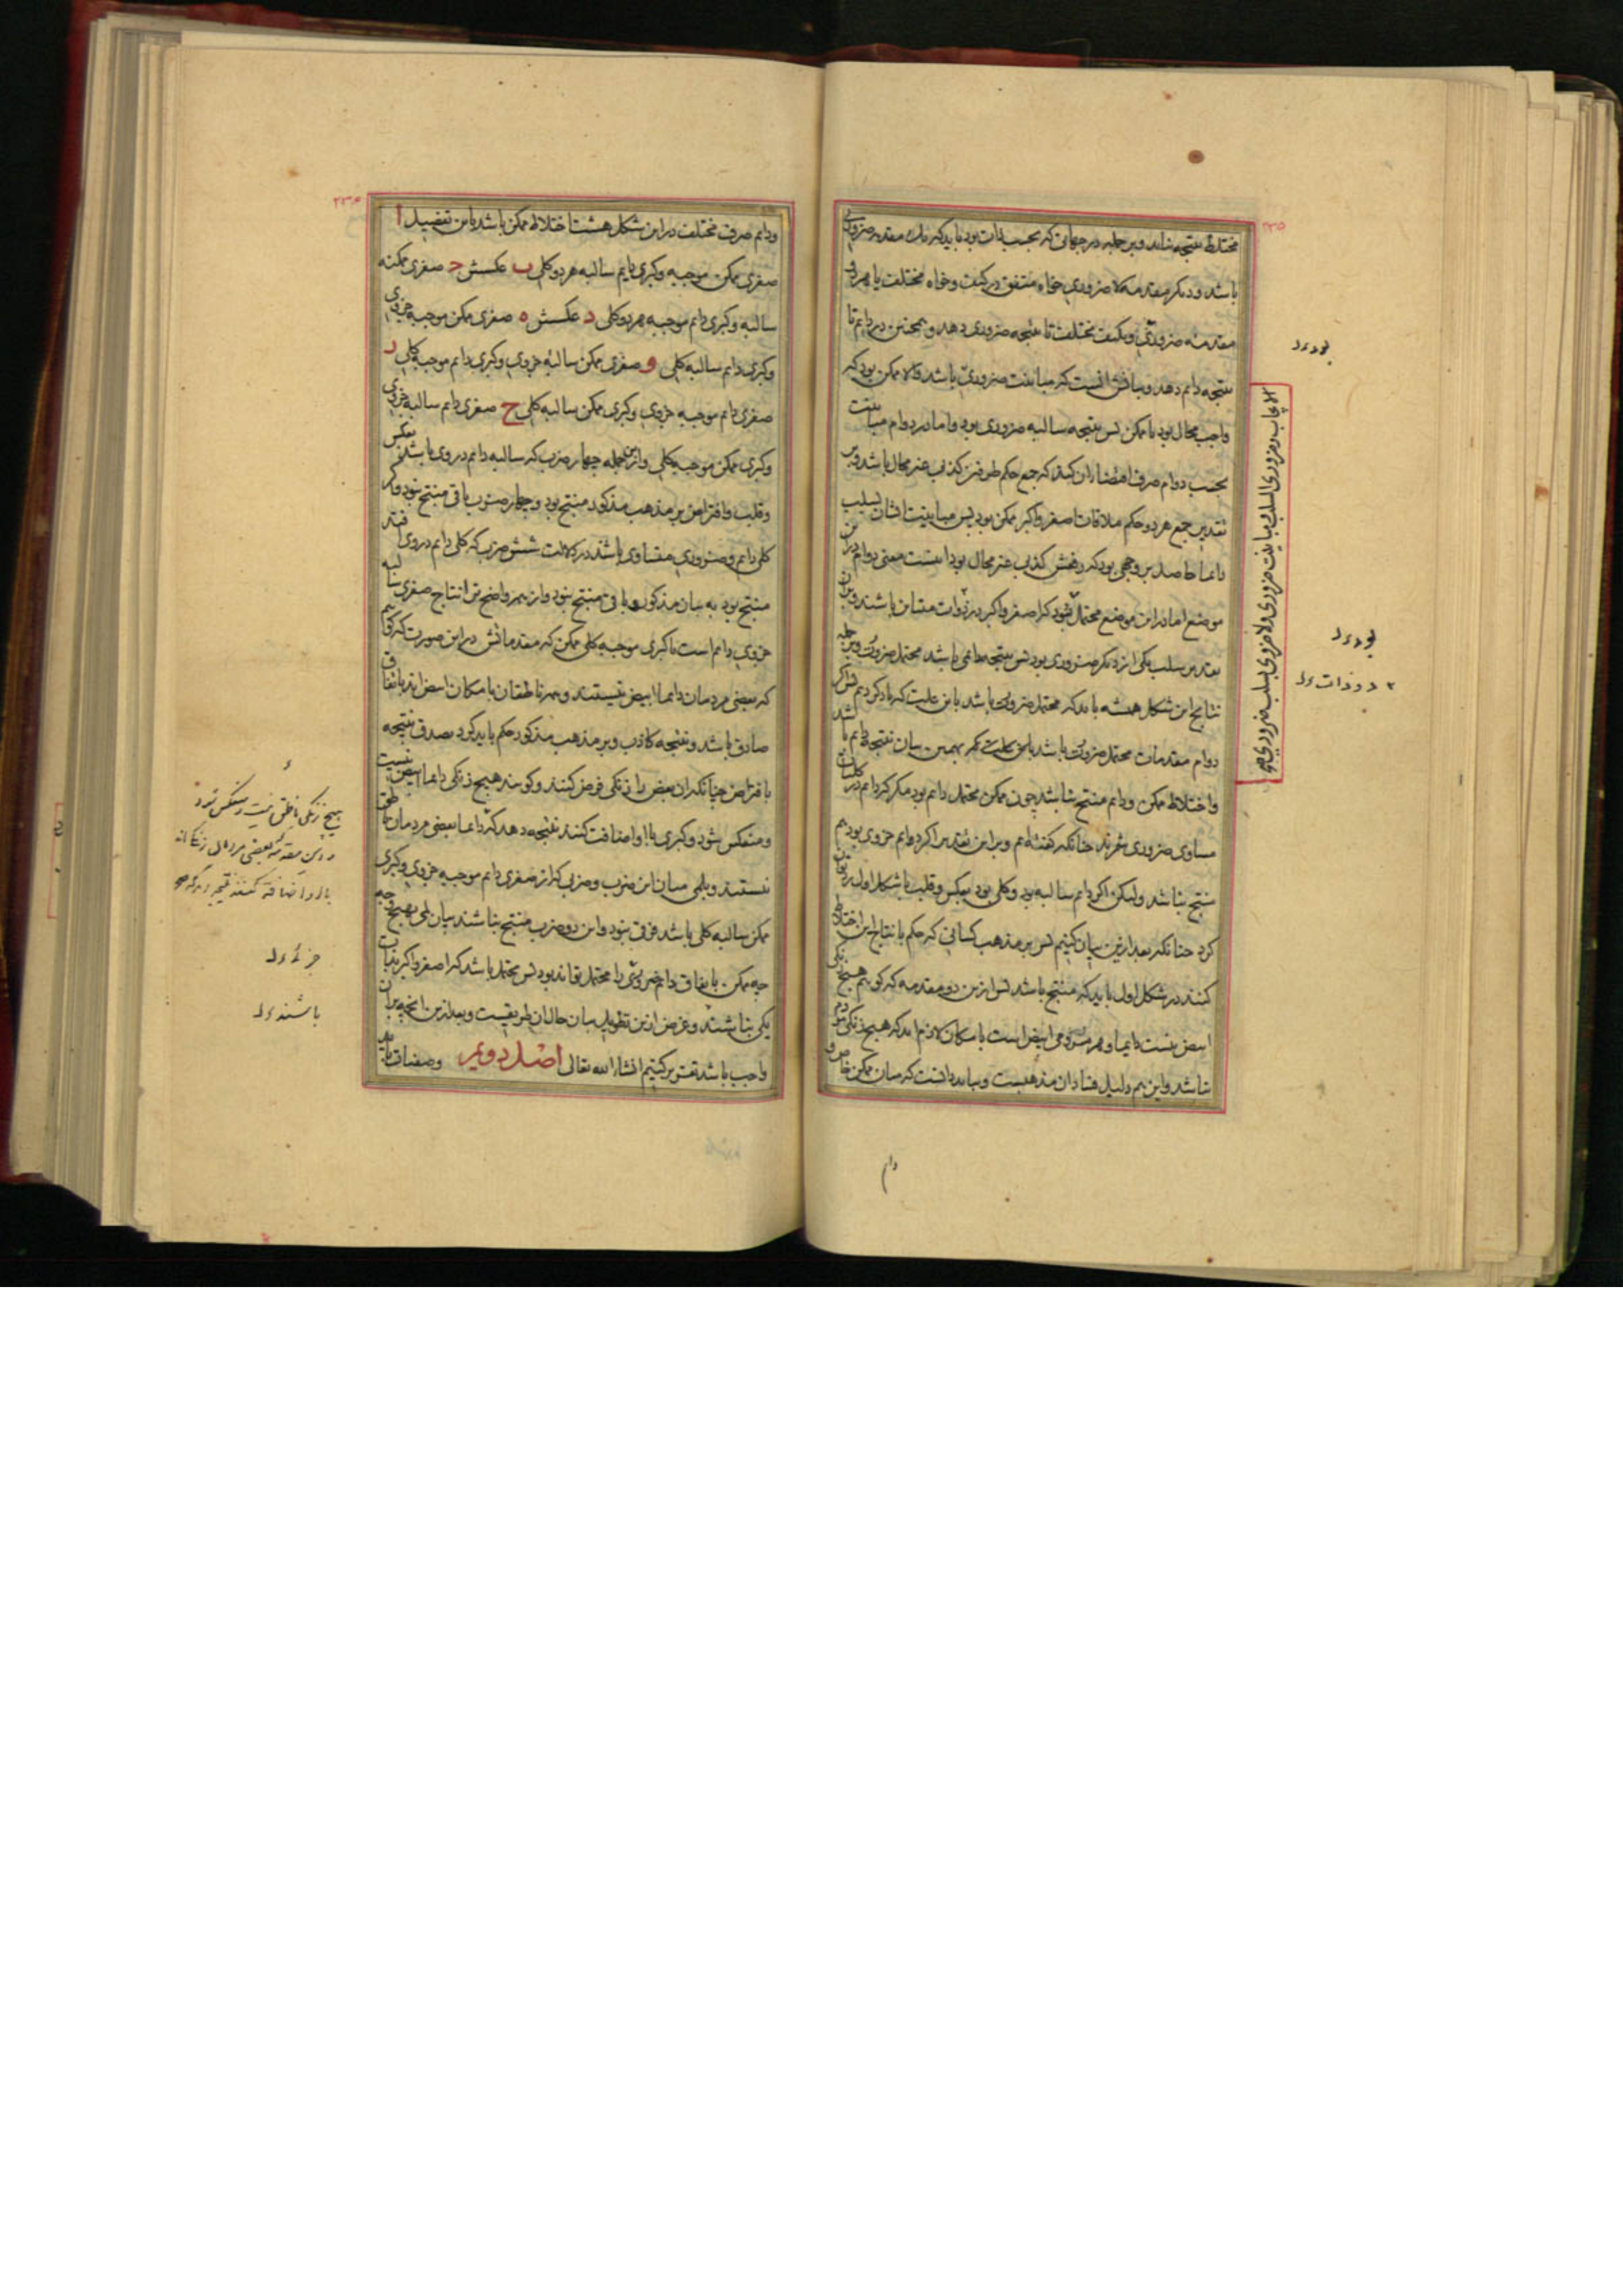 مختلط نتیجه نیاید و بر جمله در جهاتی که بحسب ذات بود باید که یک مقدمه ضروری
باشد و دیگر مقدمه لاضروری خواه متفق در کیف و خواه مختلف یا هر دو
مقدمه ضروری و بکیف مختلف تا نتیجه ضروری دهد و همچنین در دایم تا
نتیجه دایم دهد و بیانش آنست که مباینت ضروری باشد و الا ممکن بود که
واجب محال بود یا ممکن پس نتیجه سالبه ضروری بود و اما در دوام مباینت
بحسب دوام صرف اقتضاء آن کند که جمع حکم طرفین کذب غیر محال باشد و بر
تقدیر جمع هر دو حکم ملاقات اصغر و اکبر ممکن بود پس مباینت ایشان بسلب
دایما حاصل بر وجهی بود که رفعش کذب غیر محال بود اینست معنی دوام درین
موضع اما درین موضع محتمل شود که اصغر و اکبر در ذوات متباین باشند و برین
تقدیر سلب یکی از دیگر ضروری بود پس نتیجه دایمی باشد محتمل ضرورت و بر جمله
نتایج این شکل همیشه باید که محتمل ضرورت باشد باین علت که یاد کردیم پس اگر
دوام مقدمات محتمل ضرورت باشد یا نه هم بهمین بیان نتیجه دایم باشد
و اختلاط ممکن و دایم منتج نباشد چون ممکن محتمل دایم بود مگر که دایم در کلیات
مساوی ضروری شمرند چنانکه گفته‌ایم و برین تقدیر اگر دوایم جزوی بود هم
منتج نباشد ولیکن اگر دایم سالبه بود و کلی بود بعکس و قلب با شکل اول رد توان
کرد چنانکه بعد ازین بیان کنیم پس بر مذهب کسانی که حکم بانتاج این اختلاط
کنند در شکل اول باید که منتج باشد پس ازین دو مقدمه که گوییم هیچ زنگی
ابیض نیست دایما و هر رومی ابیض است بامکان لازم آید که هیچ زنگی رومی
نباشد و این هم دلیل فساد آن مذهبست و بباید دانست که میان ممکن خاص و
دایم
بود ء ل
بود ء ل
۲ در ذات ء ل
۲۳۵
۲۳۴
و دایم صرف مختلف در این شکل هشت اختلاط ممکن باشد باین تفصیل ا
صغری ممکن موجبه و کبری دایم سالبه هر دو کلی ب عکسش ج صغری ممکنه
سالبه و کبری دایم موجبه هر دو کلی د عکسش ه صغری ممکن موجبه جزوی
و کبری دایم سالبه کلی و صغری ممکن سالبه جزوی و کبری دایم موجبه کلی ز
صغری دایم موجبه جزوی و کبری ممکن سالبه کلی ح صغری دایم سالبه جزوی
و کبری ممکن موجبه کلی و ازین جمله چهار ضرب که سالبه دایم در وی باشد بعکس
و قلب و افتراض بر مذهب مذکور منتج بود و چهار ضرب باقی منتج نبود و اگر
کلی دایم و ضروری متساوی باشند در دلالت شش ضرب که کلی دایم در وی افتد
منتج بود به بیان مذکور و باقی منتج نبود و از همه واضح‌تر انتاج صغری سالبه
جزوی دایم است با کبری موجبه کلی ممکن که مقدماتش در این صورت که گوییم
که بعضی مردمان دایما ابیض نیستند و همه ناطقان بامکان ابیض‌اند باتفاق
صادق باشد و نتیجه کاذب و بر مذهب مذکور حکم باید کرد بصدق نتیجه
بافتراض چنانکه آن بعض را زنگی فرض کنند و گویند هیچ زنگی دایما ابیض نیست
و منعکس شود و کبری با او اضافت کنند نتیجه دهد که دایما بعضی مردمان ناطق
نیستند و بلمی میان این ضرب و ضربی که از صغری دایم موجبه جزوی و کبری
ممکن سالبه کلی باشد فرق نبود و این دو ضرب منتج نباشند بیان لمی بهیچ وجه
چه ممکن باتفاق دایم ضروری را محتمل تواند بود پس محتمل باشد که اصغر و اکبر بذات
یکی نباشند و غرض ازین تطویل بیان حال آن طریقیست و بعد ازین آنچه بیان
واجب باشد تقریر کنیم انشاء الله تعالی اصل دویم و صفیات باید
هیچ زنگی ناطق نیست و منعکس شود
و این مقدمه که بعضی مردمان زنگی‌اند
با او اضافه کنند نتیجه دهد که
جزء ء ل
باشند ء ل